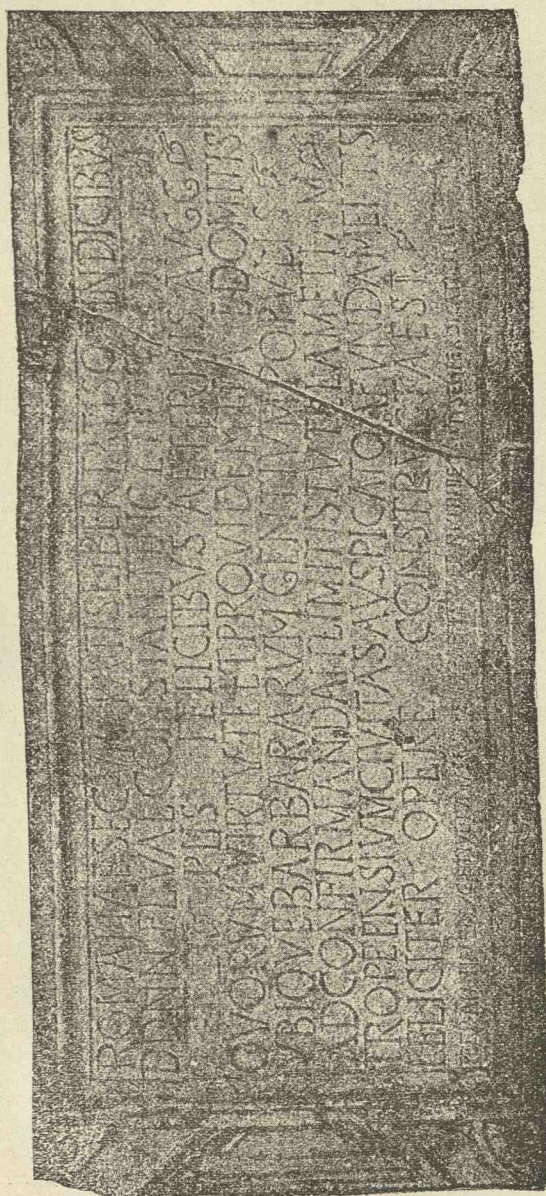 ROMANAE SECVRITATIS LIBERTATISQ VINDICIBVS
DD NN FL VAL CONSTANTINO ET
PIIS FELICIBVS AETERNIS AVGG
QVORVM VIRTVTE ET PROVIDENTIA EDOMITIS
VBIQVE BARBARARVM GENTIVM POPVLIS
AD CONFIRMANDAM LIMITIS TVTELAM ETIAM
TROPEENSIVM CIVITAS AVSPICATO A FVNDAMENTIS
FELICITER OPERE CONSTRVCTA EST